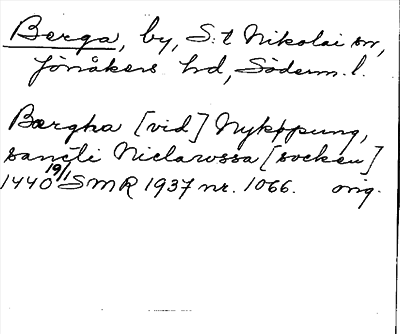 Berga, by, S:t Nikolai sn,
Jönåkers hd, Söderm. l.
Bærgha [vid] Nykøpung,
sancti Niclarossa [socken]
1440 19/1 SMR 1937 nr. 1066. orig.